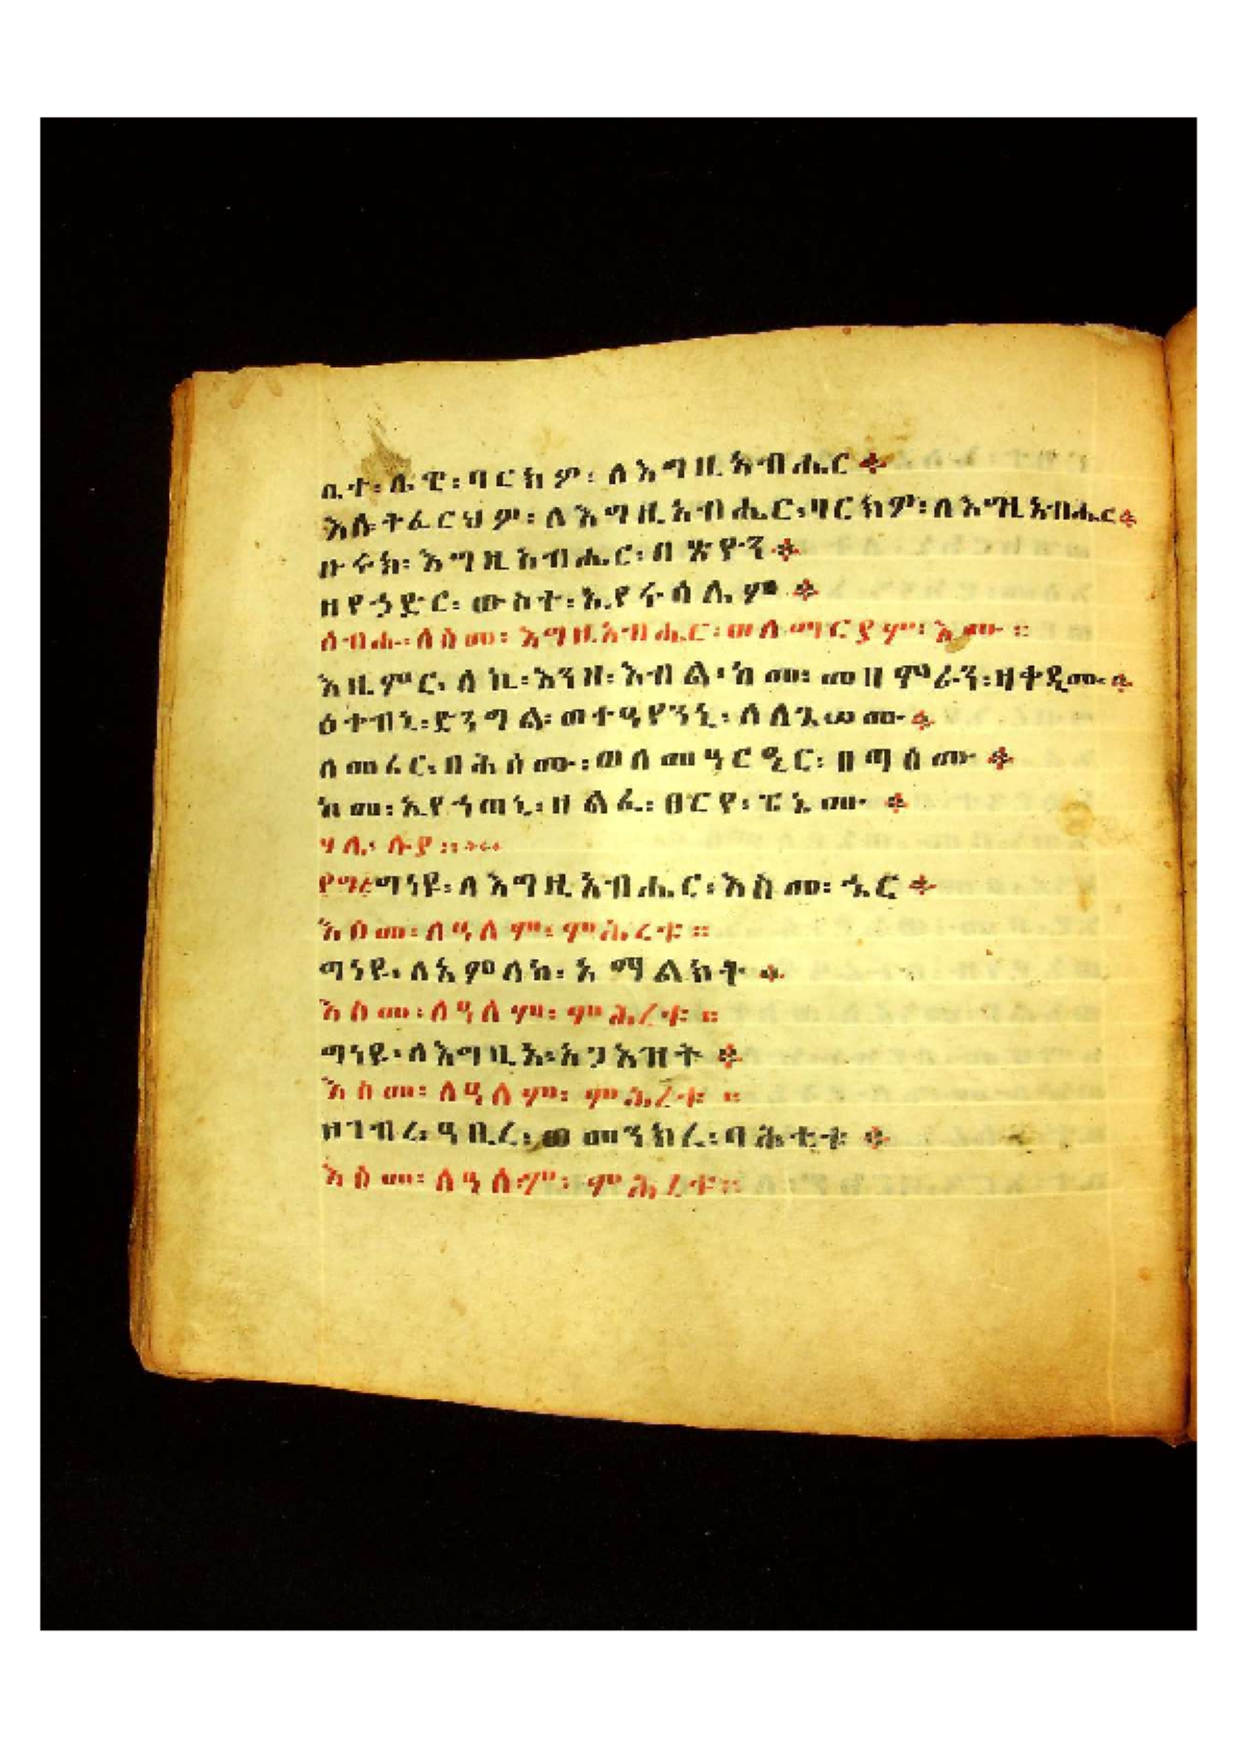 ቤተ፡ ሌዊ፡ ባርክዎ፡ ለእግዚአብሔር ፨
እለ ትፈርህዎ፡ ለእግዚአብሔር፡ ባርክዎ፡ ለእግዚአብሔር ፨
ቡሩክ፡ እግዚአብሔር፡ በጽዮን ፨
ዘየኃድር፡ ውስተ፡ ኢየሩሳሌም ፨
ስብሐ፡ ለስመ፡ እግዚአብሔር፡ ወለማርያም፡ እሙ ።
እዜምር፡ ለኪ፡ እንዘ፡ እብል፡ ከመ፡ መዘምራን፡ ዘቀዲሙ ፨
ዕቀብኒ፡ ድንግል፡ ወተዓየንኒ፡
ከመ፡ ኢየኀጣኒ፡ ዘልፈ፡
ሃሌ፡ ሉያ ።
ግነዩ፡ ለእግዚአብሔር፡ እስመ፡ ኄር ፨
እስመ፡ ለዓለም፡ ምሕረቱ ።
ግነዩ፡ ለአምላከ፡ አማልክት ፨
እስመ፡ ለዓለም፡ ምሕረቱ ።
ግነዩ፡ ለእግዚአ፡ አጋእዝት ፨
እስመ፡ ለዓለም፡ ምሕረቱ ።
ዘገብረ፡ ዓቢረ፡ ወመንክረ፡ ባሕቲቱ ፨
እስመ፡ ለዓለም፡ ምሕረቱ ።